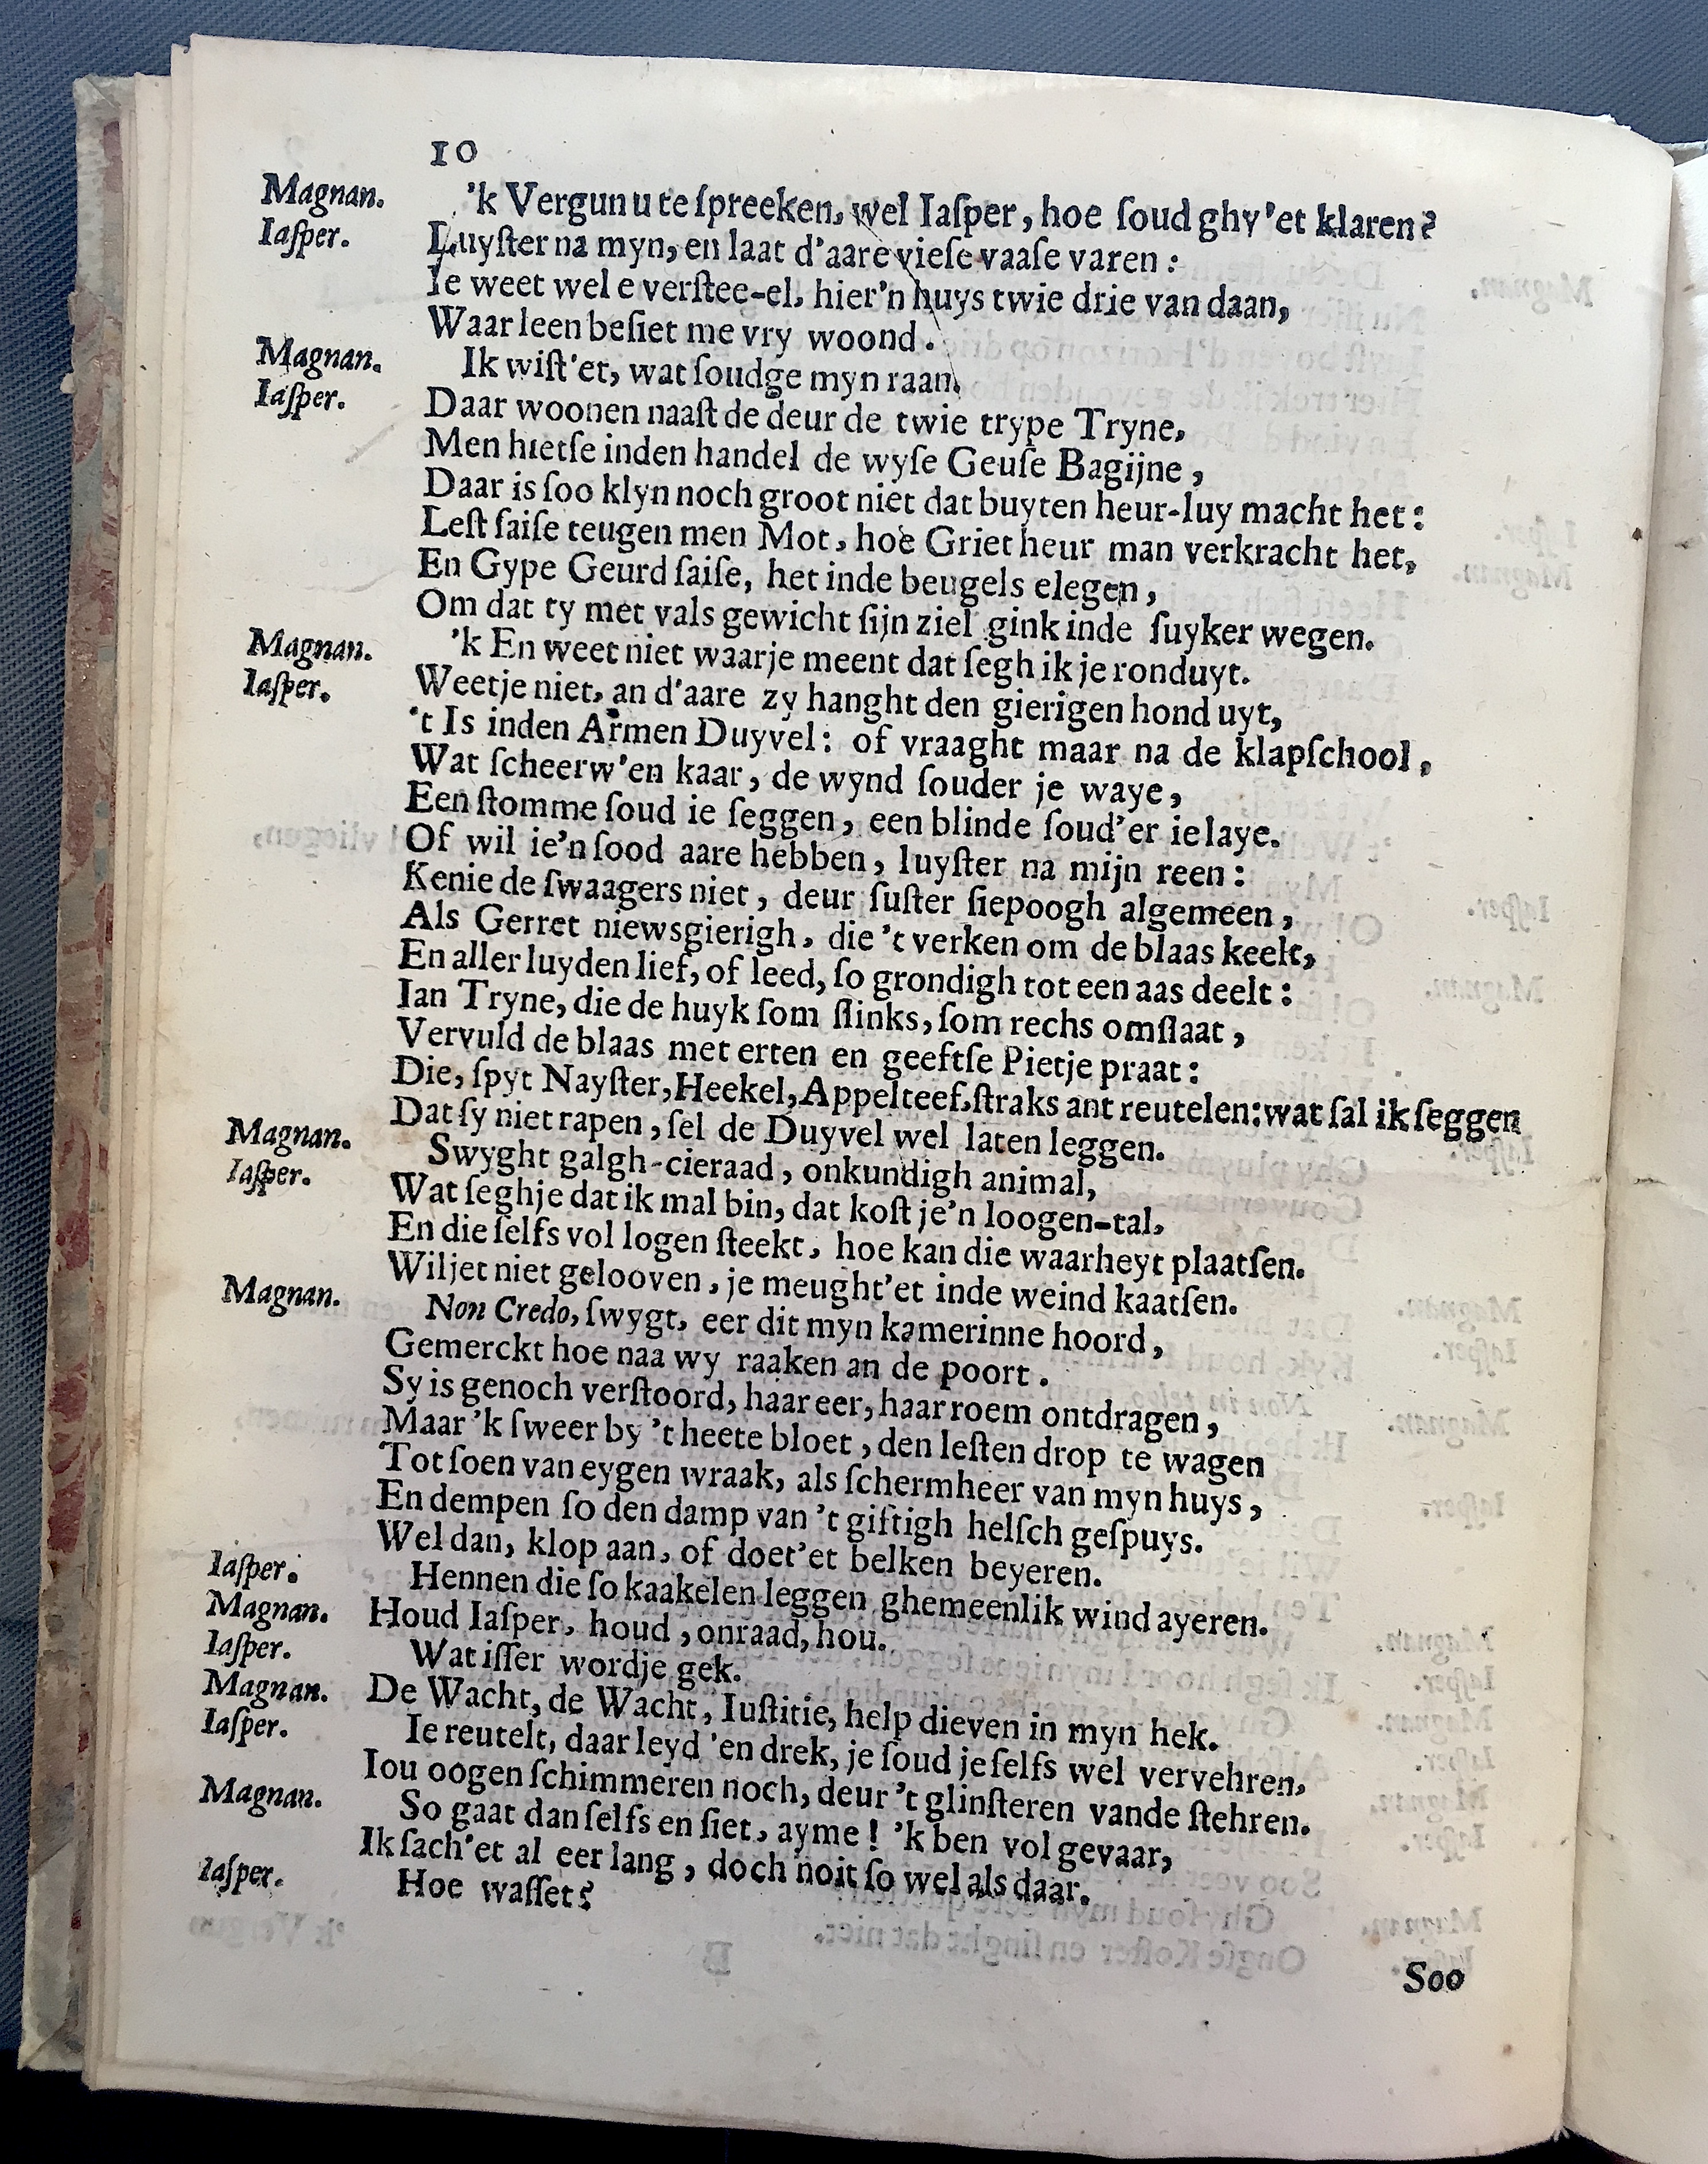 10
Magnan. 'k Vergun u te ſpreeken, wel Iaſper, hoe ſoud ghy 'et klaren?
Iaſper. Luyſter na myn, en laat d'aare vieſe vaaſe varen:
Ie weet wel e verſtee-el, hier'n huys twie drie van daan,
Waar leen beſiet me vry woond.
Magnan. Ik wiſt'et, wat ſoudge myn raan.
Iaſper. Daar woonen naaſt de deur de twie trype Tryne,
Men hietſe inden handel de wyſe Geuſe Bagijne,
Daar is ſoo klyn noch groot niet dat buyten heur-luy macht het:
Leſt ſaiſe teugen men Mot, hoe Griet heur man verkracht het,
En Gype Geurd ſaiſe, het inde beugels elegen,
Om dat ty met vals gewicht ſijn ziel gink inde ſuyker wegen.
Magnan. 'k En weet niet waarje meent dat ſegh ik je ronduyt.
Iaſper. Weetje niet, an d'aare zy hanght den gierigen hond uyt,
't Is inden Armen Duyvel: of vraaght maar na de klapſchool,
Wat ſcheerw'en kaar, de wynd ſouder je waye,
Een ſtomme ſoud ie ſeggen, een blinde ſoud'er ie laye.
Of wil ie'n ſood aare hebben, luyſter na mijn reen:
Kenie de ſwaagers niet, deur ſuſter ſiepoogh algemeen,
Als Gerret niewsgierigh, die 't verken om de blaas keelt,
En aller luyden lief, of leed, ſo grondigh tot een aas deelt:
Ian Tryne, die de huyk ſom ſlinks, ſom rechs omſlaat,
Vervuld de blaas met erten en geeftſe Pietje praat:
Die, ſpyt Nayſter, Heekel, Appelteef, ſtraks ant reutelen: wat ſal ik ſeggen
Dat ſy niet rapen, ſel de Duyvel wel laten leggen.
Magnan. Swyght galgh-cieraad, onkundigh animal,
Iaſper. Wat ſeghje dat ik mal bin, dat koſt je'n loogen-tal,
En die ſelfs vol logen ſteekt, hoe kan die waarheyt plaatſen.
Wiljet niet gelooven, je meught'et inde weind kaatſen.
Magnan. Non Credo, ſwygt, eer dit myn kamerinne hoord,
Gemerckt hoe naa wy raaken an de poort.
Sy is genoch verſtoord, haar eer, haar roem ontdragen,
Maar 'k ſweer by 't heete bloet, den leſten drop te wagen
Tot ſoen van eygen wraak, als ſchermheer van myn huys,
En dempen ſo den damp van 't giftigh helſch geſpuys.
Wel dan, klop aan, of doet'et belken beyeren.
Iaſper. Hennen die ſo kaakelen leggen ghemeenlik wind ayeren.
Magnan. Houd Iaſper, houd, onraad, hou.
Iaſper. Wat iſſer wordje gek.
Magnan. De Wacht, de Wacht, Iuſtitie, help dieven in myn hek.
Iaſper. Ie reutelt, daar leyd 'en drek, je ſoud je ſelfs wel vervehren,
Iou oogen ſchimmeren noch, deur 't glinſteren vande ſtehren.
Magnan. So gaat dan ſelfs en ſiet, ayme! 'k ben vol gevaar,
Ik ſach'et al eer lang, doch noit ſo wel als daar.
Iaſper. Hoe waſſet?
Soo